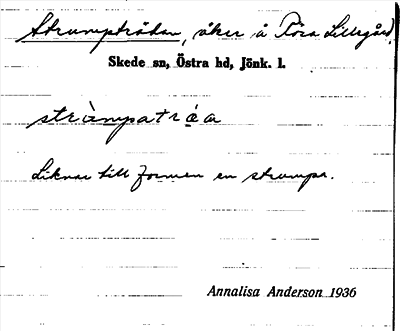 Strumpträdan, åker å Röra Lillegård.
Skede sn, Östra hd, Jönk. l.
stràmpatráa
Liknar till formen en strumpa.
Annalisa Anderson 1936